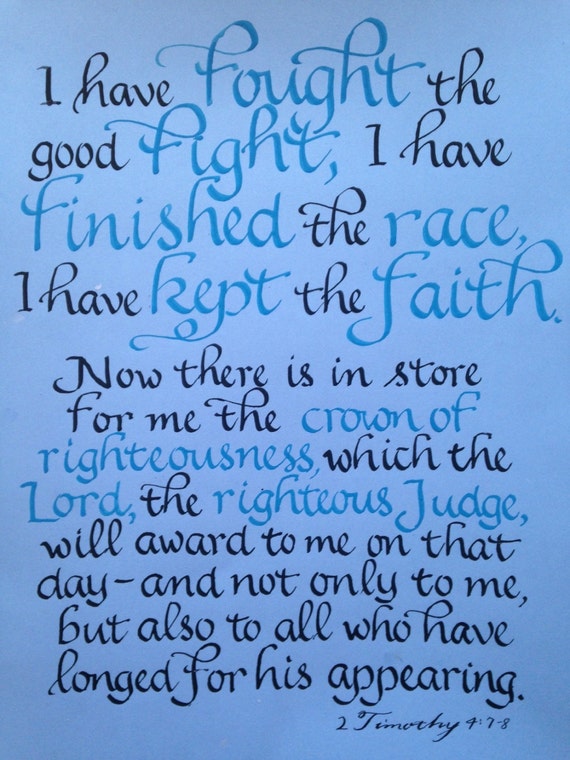 I have fought the
good fight, I have
finished the race,
I have kept the faith.
Now there is in store
for me the crown of
righteousness, which the
Lord, the righteous Judge,
will award to me on that
day-and not only to me,
but also to all who have
longed for his appearing.
2 Timothy 4:7-8